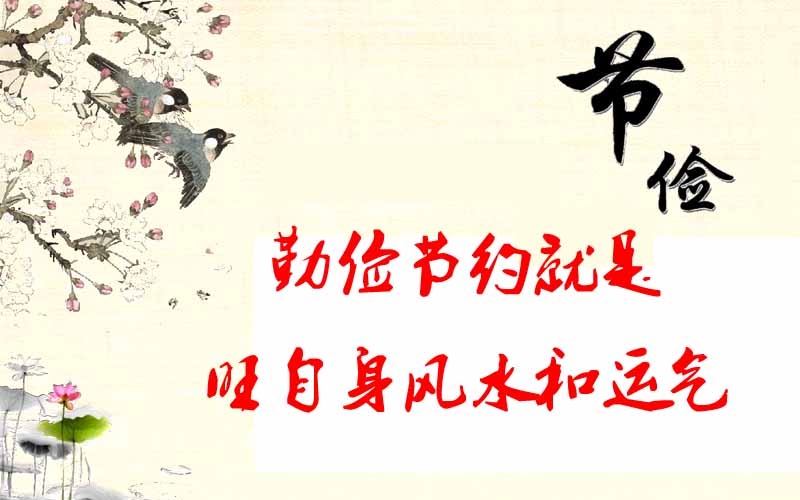 节俭
勤俭节约就是
旺自身风水和运气